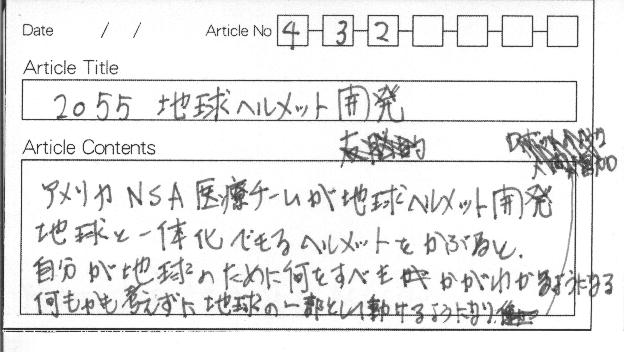 Date / / Article No 4-3-2
Article Title
2055 地球ヘルメット開発
Article Contents
アメリカ NSA 医療チームが地球ヘルメット開発
地球と一体化できるヘルメットをかぶると、
自分が地球のために何をすべきかがわかるようになる
何もかも考えずに地球の一部として動けるようになり、